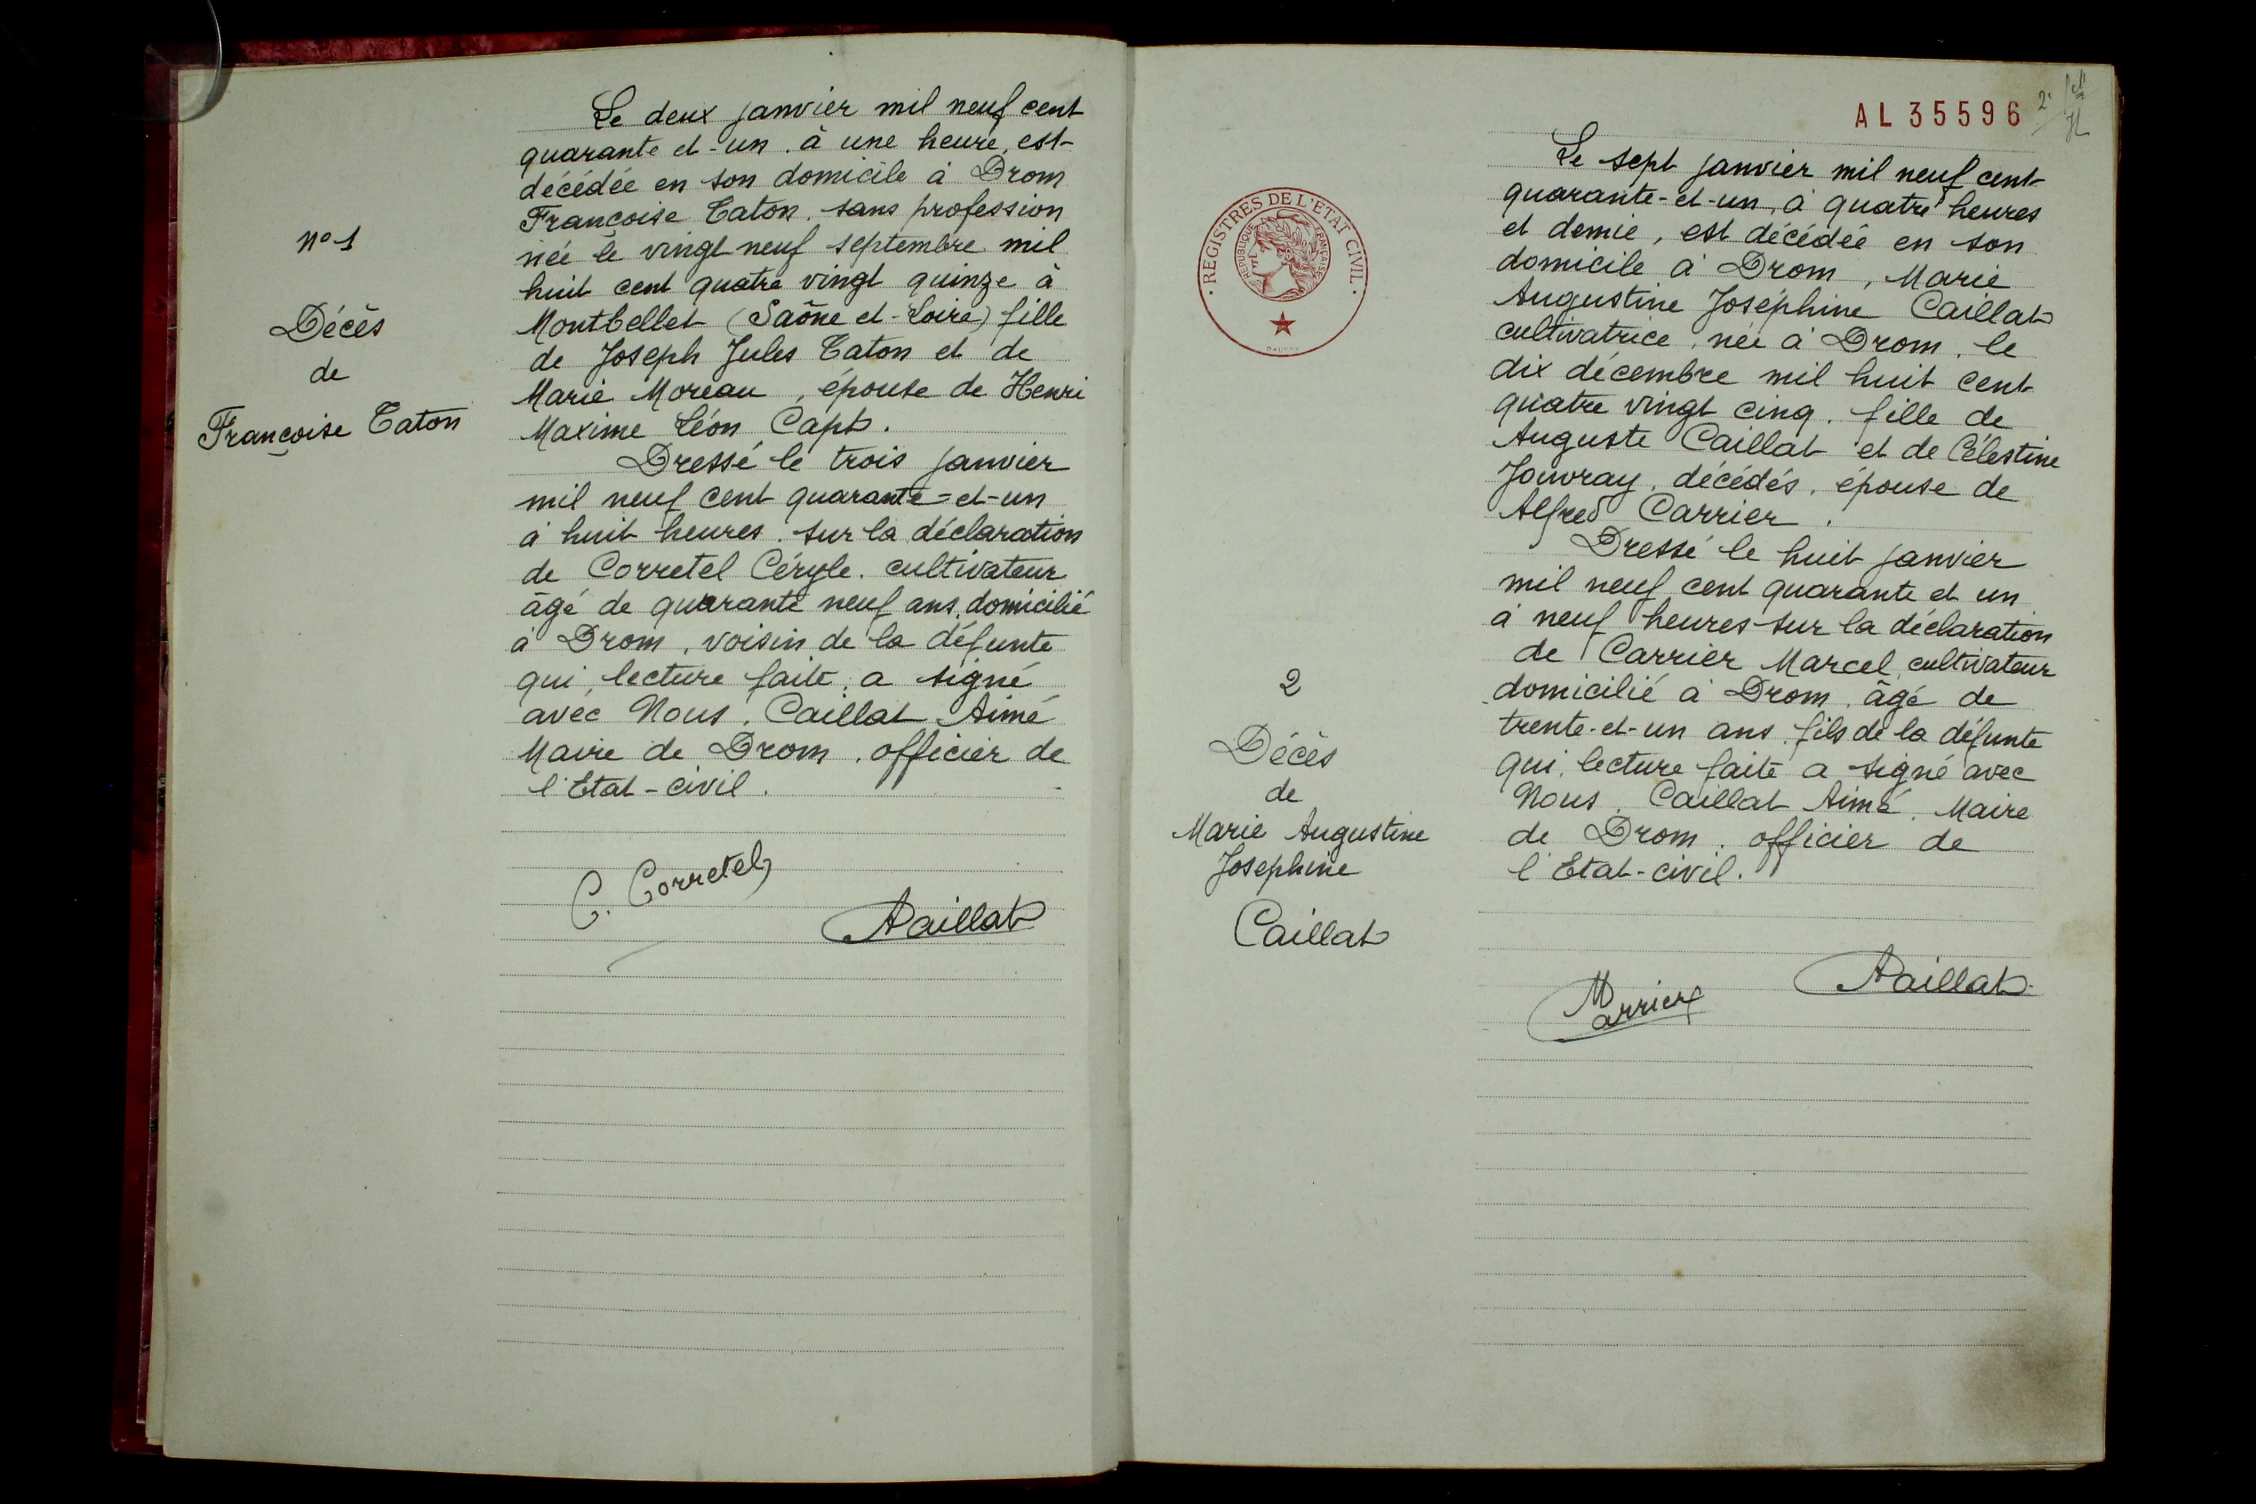 n° 1
Décès
de
Françoise Taton
Le deux janvier mil neuf cent
quarante et-un. à une heure, est-
décédée en son domicile à Drom
Francoise Taton. sans profession
née le vingt neuf septembre mil
huit cent quatre vingt quinze à
Montbellet (Saône et-Loire) fille
de Joseph Jules Taton et de
Marie Moreau, épouse de Henri
Maxime Léon Capt.
Dressé le trois janvier
mil neuf cent quarante=et-un
à huit heures. sur la déclaration
de Corretel Céryle. cultivateur
âgé de quarante neuf ans, domicilié
à Drom, voisin de la défunte
qui, lecture faite, a signé
avec Nous. Caillat Aimé
Maire de Drom. officier de
l'Etat-civil.
C. Corretel
ACaillat
AL 35596
2e
· REGISTRES DE L'ETAT CIVIL ·
REPUBLIQUE FRANÇAISE
2
Décès
de
Marie Augustine
Josephine
Caillat
Le sept janvier mil neuf cent-
quarante-et-un, à quatre heures
et demie, est décédée en son
domicile à Drom, Marie
Augustine Joséphine Caillat
cultivatrice. née à Drom. le
dix décembre mil huit cent-
quatre vingt cinq. fille de
Auguste Caillat et de Célestine
Jouvray. décédés. épouse de
Alfred Carrier.
Dressé le huit janvier
mil neuf cent quarante et un
à neuf heures sur la déclaration
de Carrier Marcel, cultivateur
domicilié à Drom. âgé de
trente-et-un ans. fils de la défunte
qui, lecture faite a signé avec
Nous. Caillat Aimé. Maire
de Drom. officier de
l'Etat-civil.
MCarrier
ACaillat